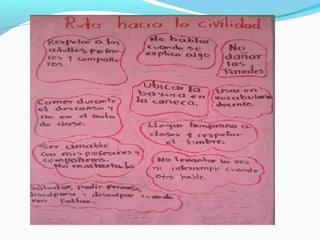 Ruta hacia la civilidad.
Respetar a los
adultos, profeso-
res y compañe-
ros.
No hablar
cuando se
explica algo
No
dañar
las
Paredes
Ubicar la
basura en
la caneca.
Usar un
vocabulario
decente.
Comer durante
el descanso y
no en el aula
de clase.
Llegar temprano a
clases y respetar
el timbre.
Ser amable
con mis profesores y
compañeros.
No maltratarlos
No levantar la voz
ni interrumpir cuando
otro hable.
Saludar, pedir permiso,
disculparse y disculpar cuando
nos faltan.